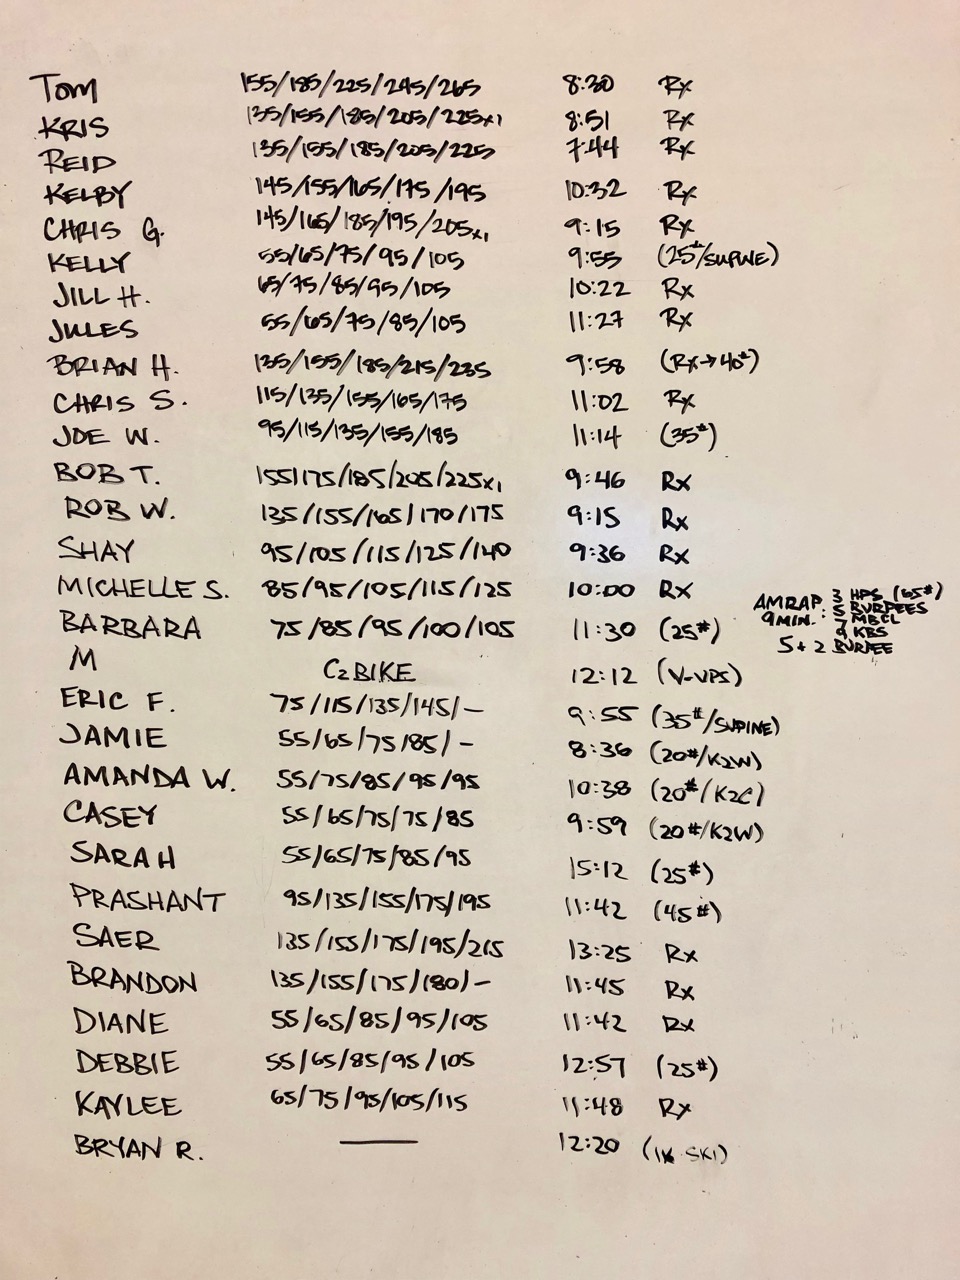 Tom 155/185/225/245/265 8:30 Rx
KRIS 135/155/185/205/225x1 8:51 Rx
REID 135/155/185/205/225 7:44 Rx
KELBY 145/155/165/175/195 10:32 Rx
CHRIS G. 145/165/185/195/205x1 9:15 Rx
KELLY 55/65/75/95/105 9:55 (25#/SUPINE)
JILL H. 65/75/85/95/105 10:22 Rx
JULES 55/65/75/85/105 11:27 Rx
BRIAN H. 135/155/185/215/235 9:58 (Rx→40#)
CHRIS S. 115/135/155/165/175 11:02 Rx
JOE W. 95/115/135/155/185 11:14 (35#)
BOB T. 155/175/185/205/225x1 9:46 Rx
ROB W. 135/155/165/170/175 9:15 Rx
SHAY 95/105/115/125/140 9:36 Rx
MICHELLE S. 85/95/105/115/125 10:00 Rx
BARBARA 75/85/95/100/105 11:30 (25#)
AMRAP 3 HPS (65#)
9MIN. : 5 BURPEES
7 MBCL
9 KBS
5+2 BURPEE
M C2 BIKE 12:12 (V-UPS)
ERIC F. 75/115/135/145/- 9:55 (35#/SUPINE)
JAMIE 55/65/75/85/- 8:36 (20#/K2W)
AMANDA W. 55/75/85/95/95 10:38 (20#/K2C)
CASEY 55/65/75/75/85 9:59 (20#/K2W)
SARAH 55/65/75/85/95 15:12 (25#)
PRASHANT 95/135/155/175/195 11:42 (45#)
SAER 135/155/175/195/215 13:25 Rx
BRANDON 135/155/175/180/- 11:45 Rx
DIANE 55/65/85/95/105 11:42 Rx
DEBBIE 55/65/85/95/105 12:57 (25#)
KAYLEE 65/75/95/105/115 11:48 Rx
BRYAN R. — 12:20 (1K SKI)